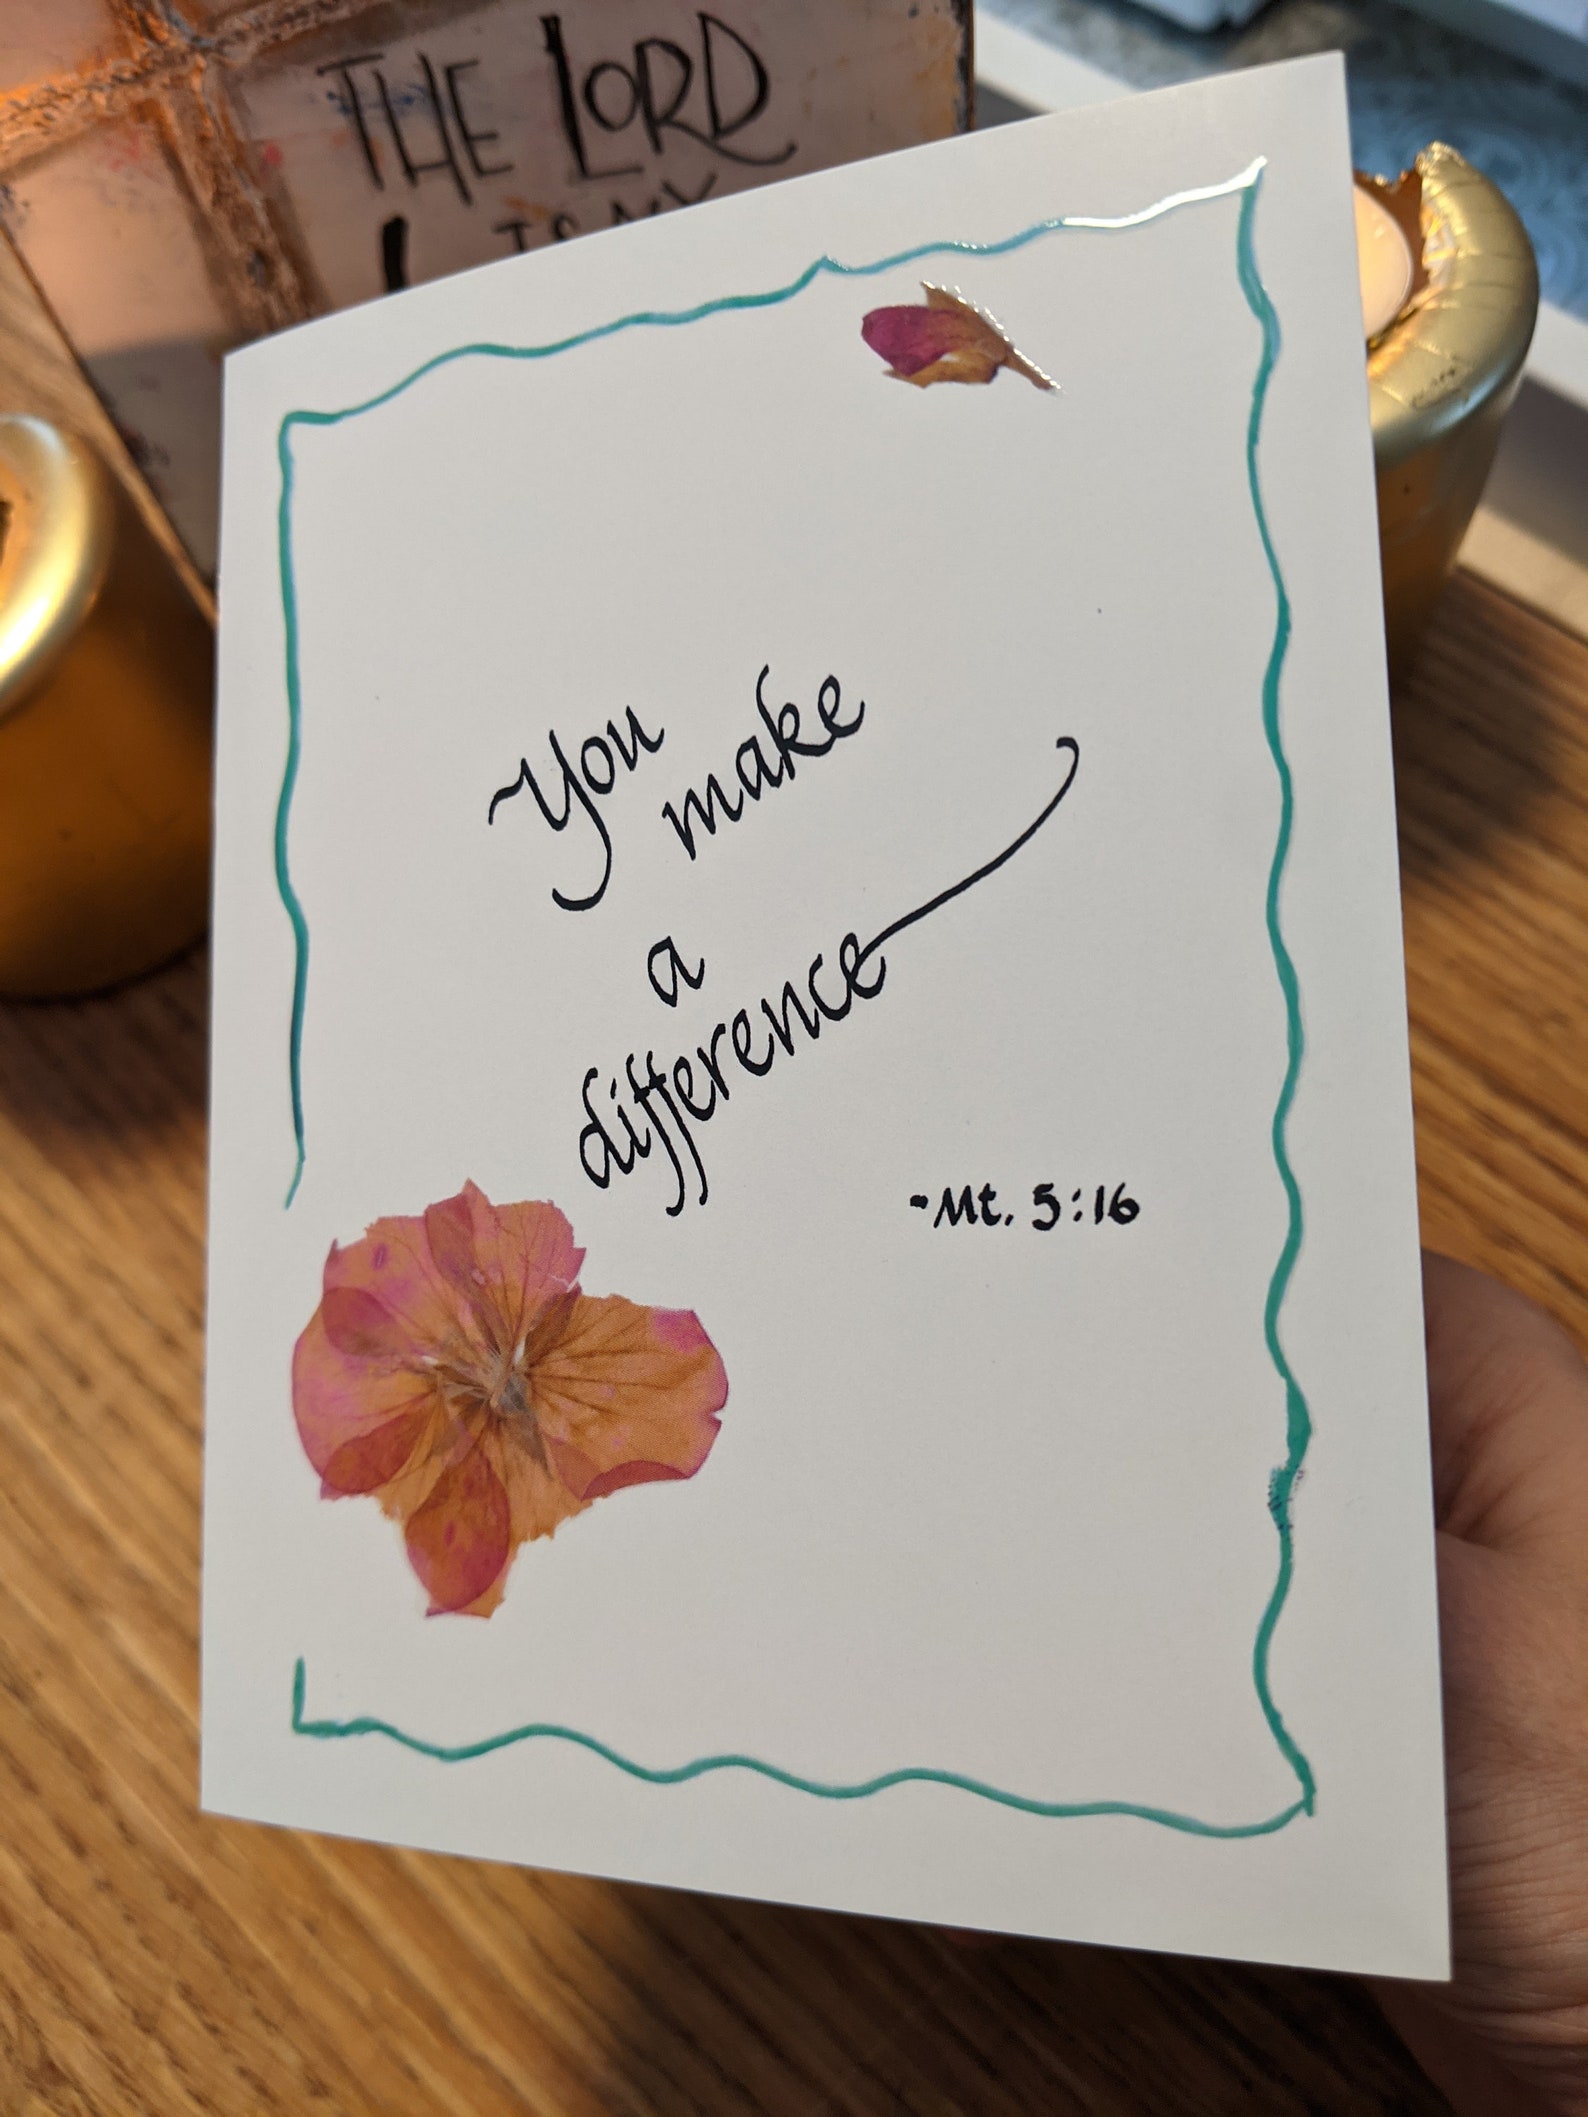 THE LORD
IS MY
You
make
a
difference
~Mt. 5:16